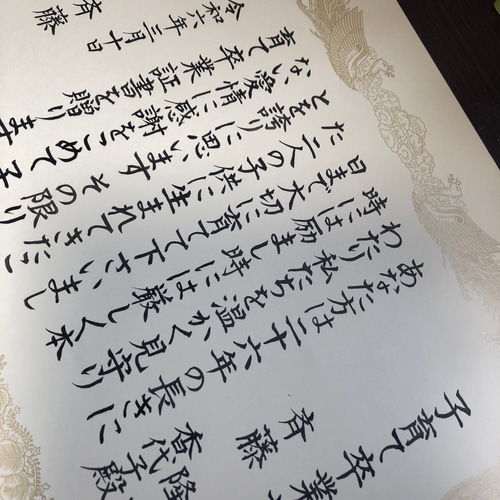 子育て卒業
斉藤 隆
香代子殿
あなた方は二十六年の長きに
わたり私たちを温かく見守り
時には励まし時には厳しく本
日まで大切に育てて下さいまし
た二人の子供に生まれてきたこ
とを誇りに思いますその限り
ない愛情に感謝をこめて子
育て卒業証書を贈ります
令和六年三月十日
斉藤